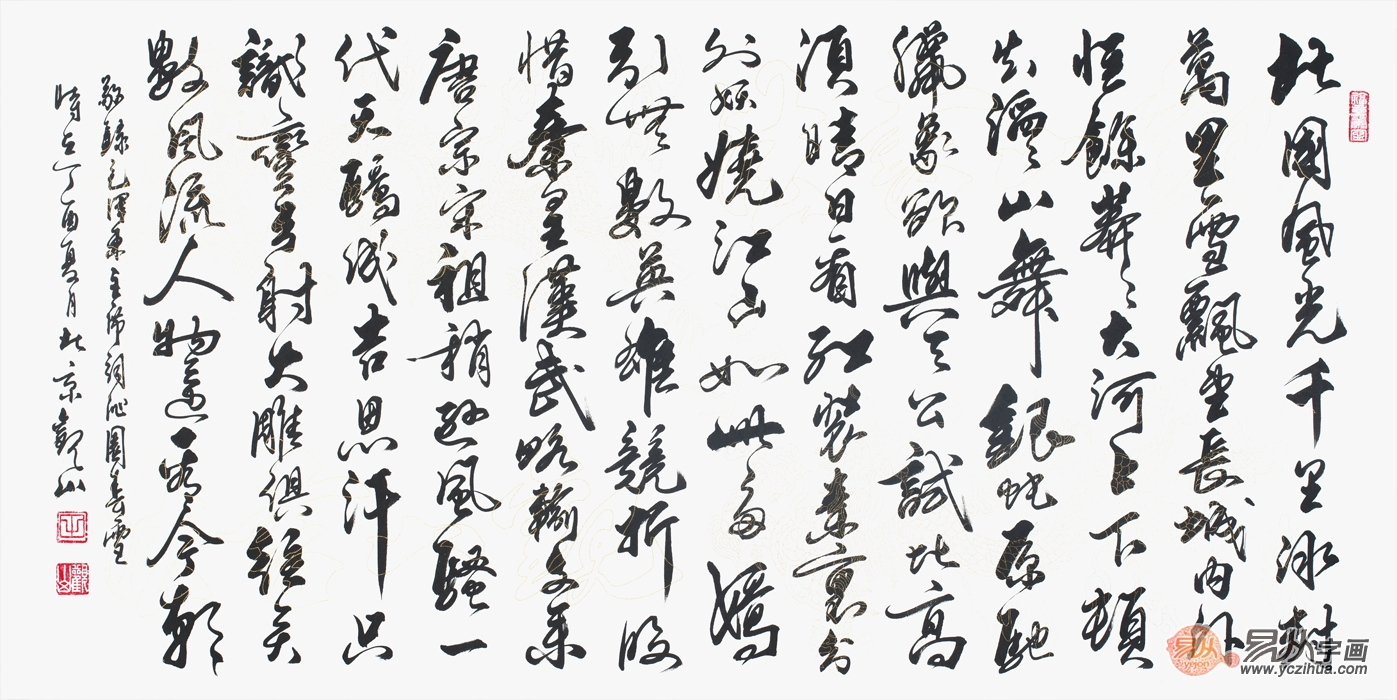 北國風光千里冰封
萬里雪飄望長城內外
惟餘莽〻大河上下頓
失滔〻山舞銀蛇原馳
臘象欲與天公試比高
須晴日看紅裝素裹分
外妖嬈江山如此多嬌
引無數英雄競折腰
惜秦皇漢武略輸文采
唐宗宋祖稍遜風騷一
代天驕成吉思汗只
識彎弓射大雕俱往矣
數風流人物還看今朝
敬錄毛澤東主席詞沁園春雪
時在丁酉夏月北京觀山
易从
yejon
易从字画
www.yczihua.com